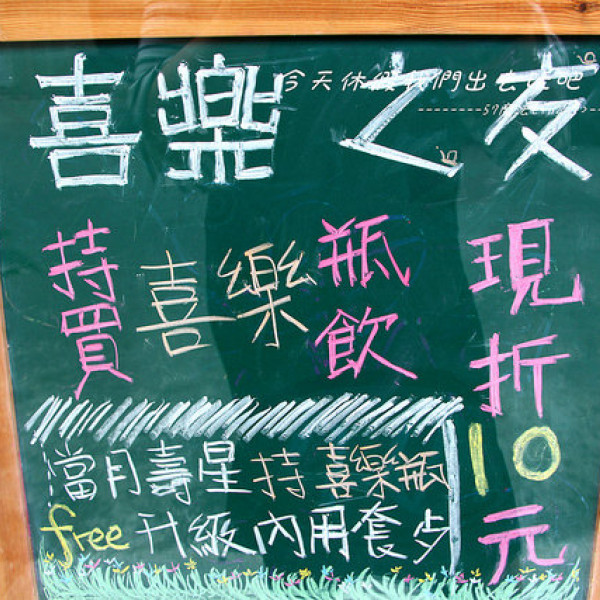 喜樂之友
今天休假我們出去玩吧
持喜樂瓶
買飲
現折10元
澢月壽星持喜樂瓶
free升級內用套歺